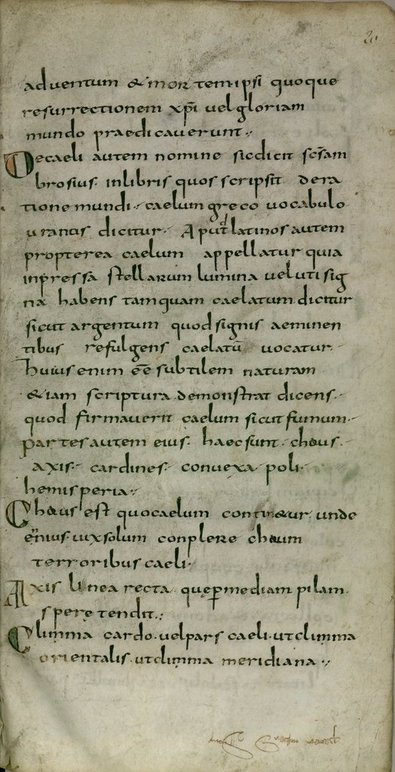 20
adventum & mortem ipsi quoque
resurrectionem xp̅i vel gloriam
mundo praedicaverunt.,
De caeli autem nomine sic dicit sc̅s am
brosius. in libris quos scripsit de cra
tione mundi. caelum greco vocabulo
uranus dicitur. Aput latinos autem
propterea caelum appellatur quia
inpressa stellarum lumina veluti sig
na habens tamquam caelatum dicitur
sicut argentum quod signis aeminen
tibus refulgens caelatu̅ vocatur.
huius enim e̅e̅ subtilem naturam
&iam scriptura demonstrat dicens.
quod firmaverit caelum sicut fumum.
partes autem eius. haec sunt. chous.
axis. cardines. convexa. poli.
hemisperia.
Chous est quo caelum contin&ur. unde
ennius. vix solum conplere choum
terroribus caeli.
Axis linea recta. que per mediam pilam.
spere tendit.,
Climma cardo. vel pars caeli. ut climma
orientalis. ut climma meridiana.,